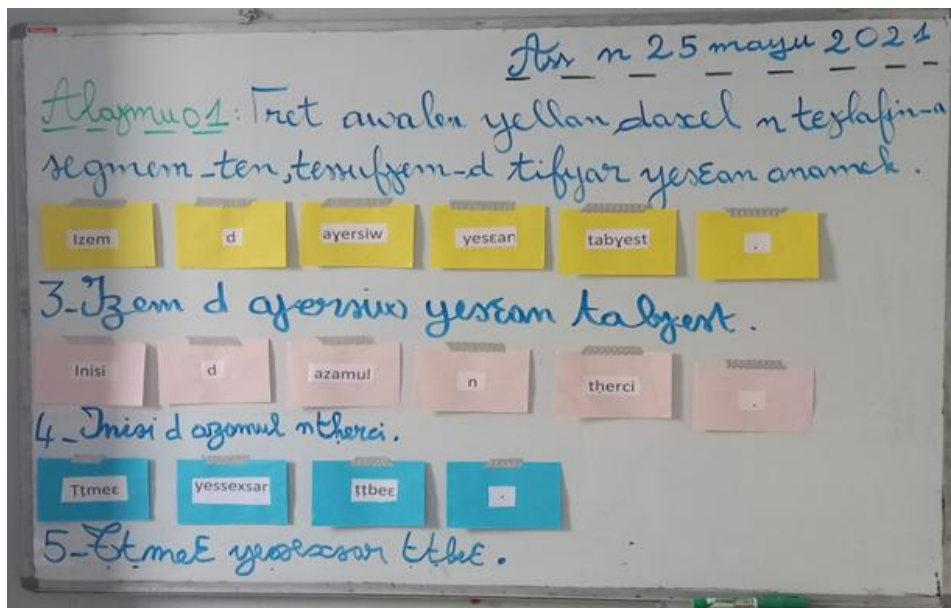 Ass n 25 mayu 2021
Alaɣmu 01: Ɛret awalen yellan daxel n teɣlafin-a
segmem-ten, tessufɣem-d tifyar yesɛan anamek.
Izem d aɣersiw yesɛan tabɣest .
3-Izem d aɣersiw yesɛan tabɣest.
Inisi d azamul n tḥerci .
4-Inisi d azamul n tḥerci.
Ṭṭmeɛ yessexsar ṭṭbeɛ .
5-Ṭṭmeɛ yessexsar ṭṭbeɛ.